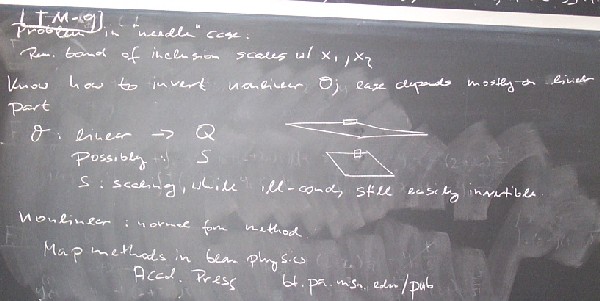 [I M-9]
Problem in "needle" case:
Rem. bound of inclusion scales w/ x1, x2
Know how to invert nonlinear O; ease depends mostly on linear
part
O: linear → Q
Possibly: S
S: scaling, while ill-cond, still easily invertible.
nonlinear: normal form method
Map methods in beam physics
Acad. Press bt.pa.msu.edu/pub